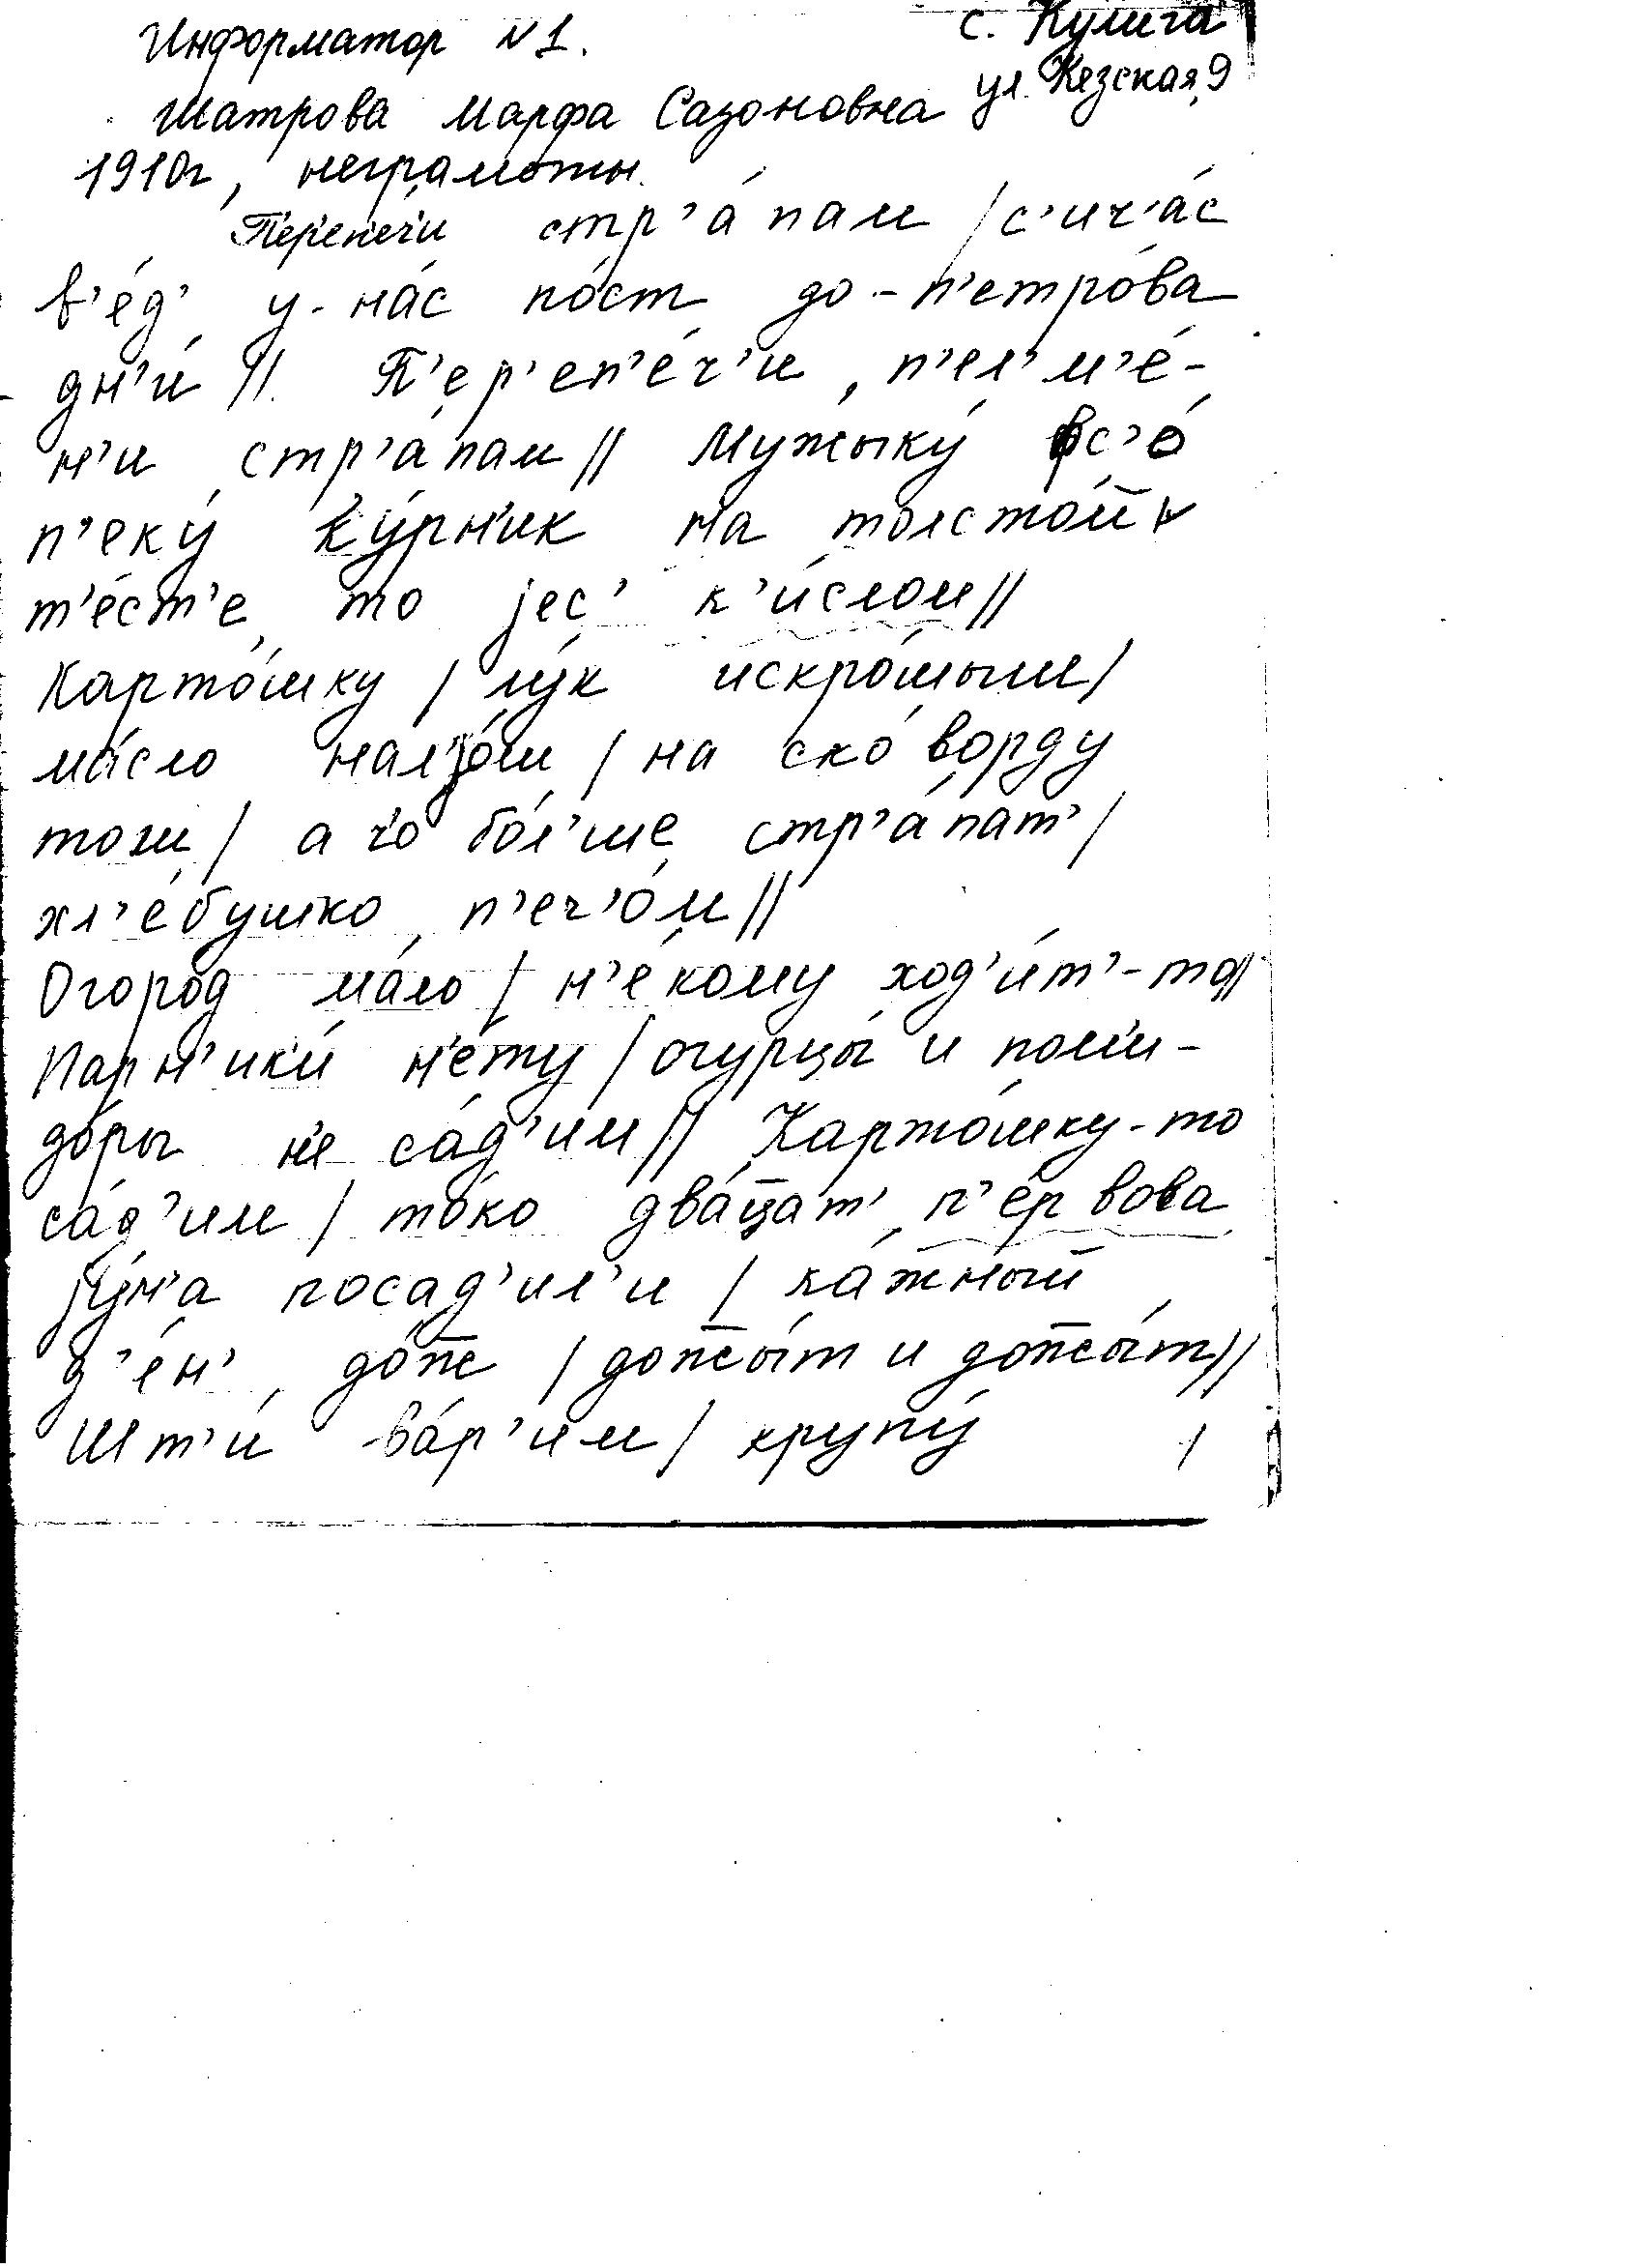 Информатор №1.
с. Кулига
ул. Кезская, 9
Шатрова Марфа Сазоновна
1910г, неграмотн.
П'ер'еп'е́ч'и стр'а́пам / с'ич'а́с
в'е́д' у-на́с по́ст до-п'етро́ва
дн'и́ // П'ер'еп'е́ч'и, п'ел'м'е́-
н'и стр'а́пам // Мужыку́ фс'о́
п'еку́ ку́рн'ик на толсто́й
т'е́ст'е, то jес' к'и́слом //
Карто́шку / лу́к искро́шым /
ма́сло нал'jо́ш / на ско́ворду
тож / а ч'о бо́л'ше стр'а́пат' /
хл'е́бушко п'еч'о́м //
Огоро́д ма́ло / н'е́кому ход'и́т'-то //
Парн'ики́ н'е́ту / огурцы́ и пом'и-
до́ры н'е са́д'им // Карто́шку-то
са́д'им / то́ко два́цат' п'е́рвова
jу́н'а посад'ил'и / ка́жный
д'е́н' до́ж / дожжы́т и дожжы́т //
Шт'и́ ва́р'им / крупу́ /